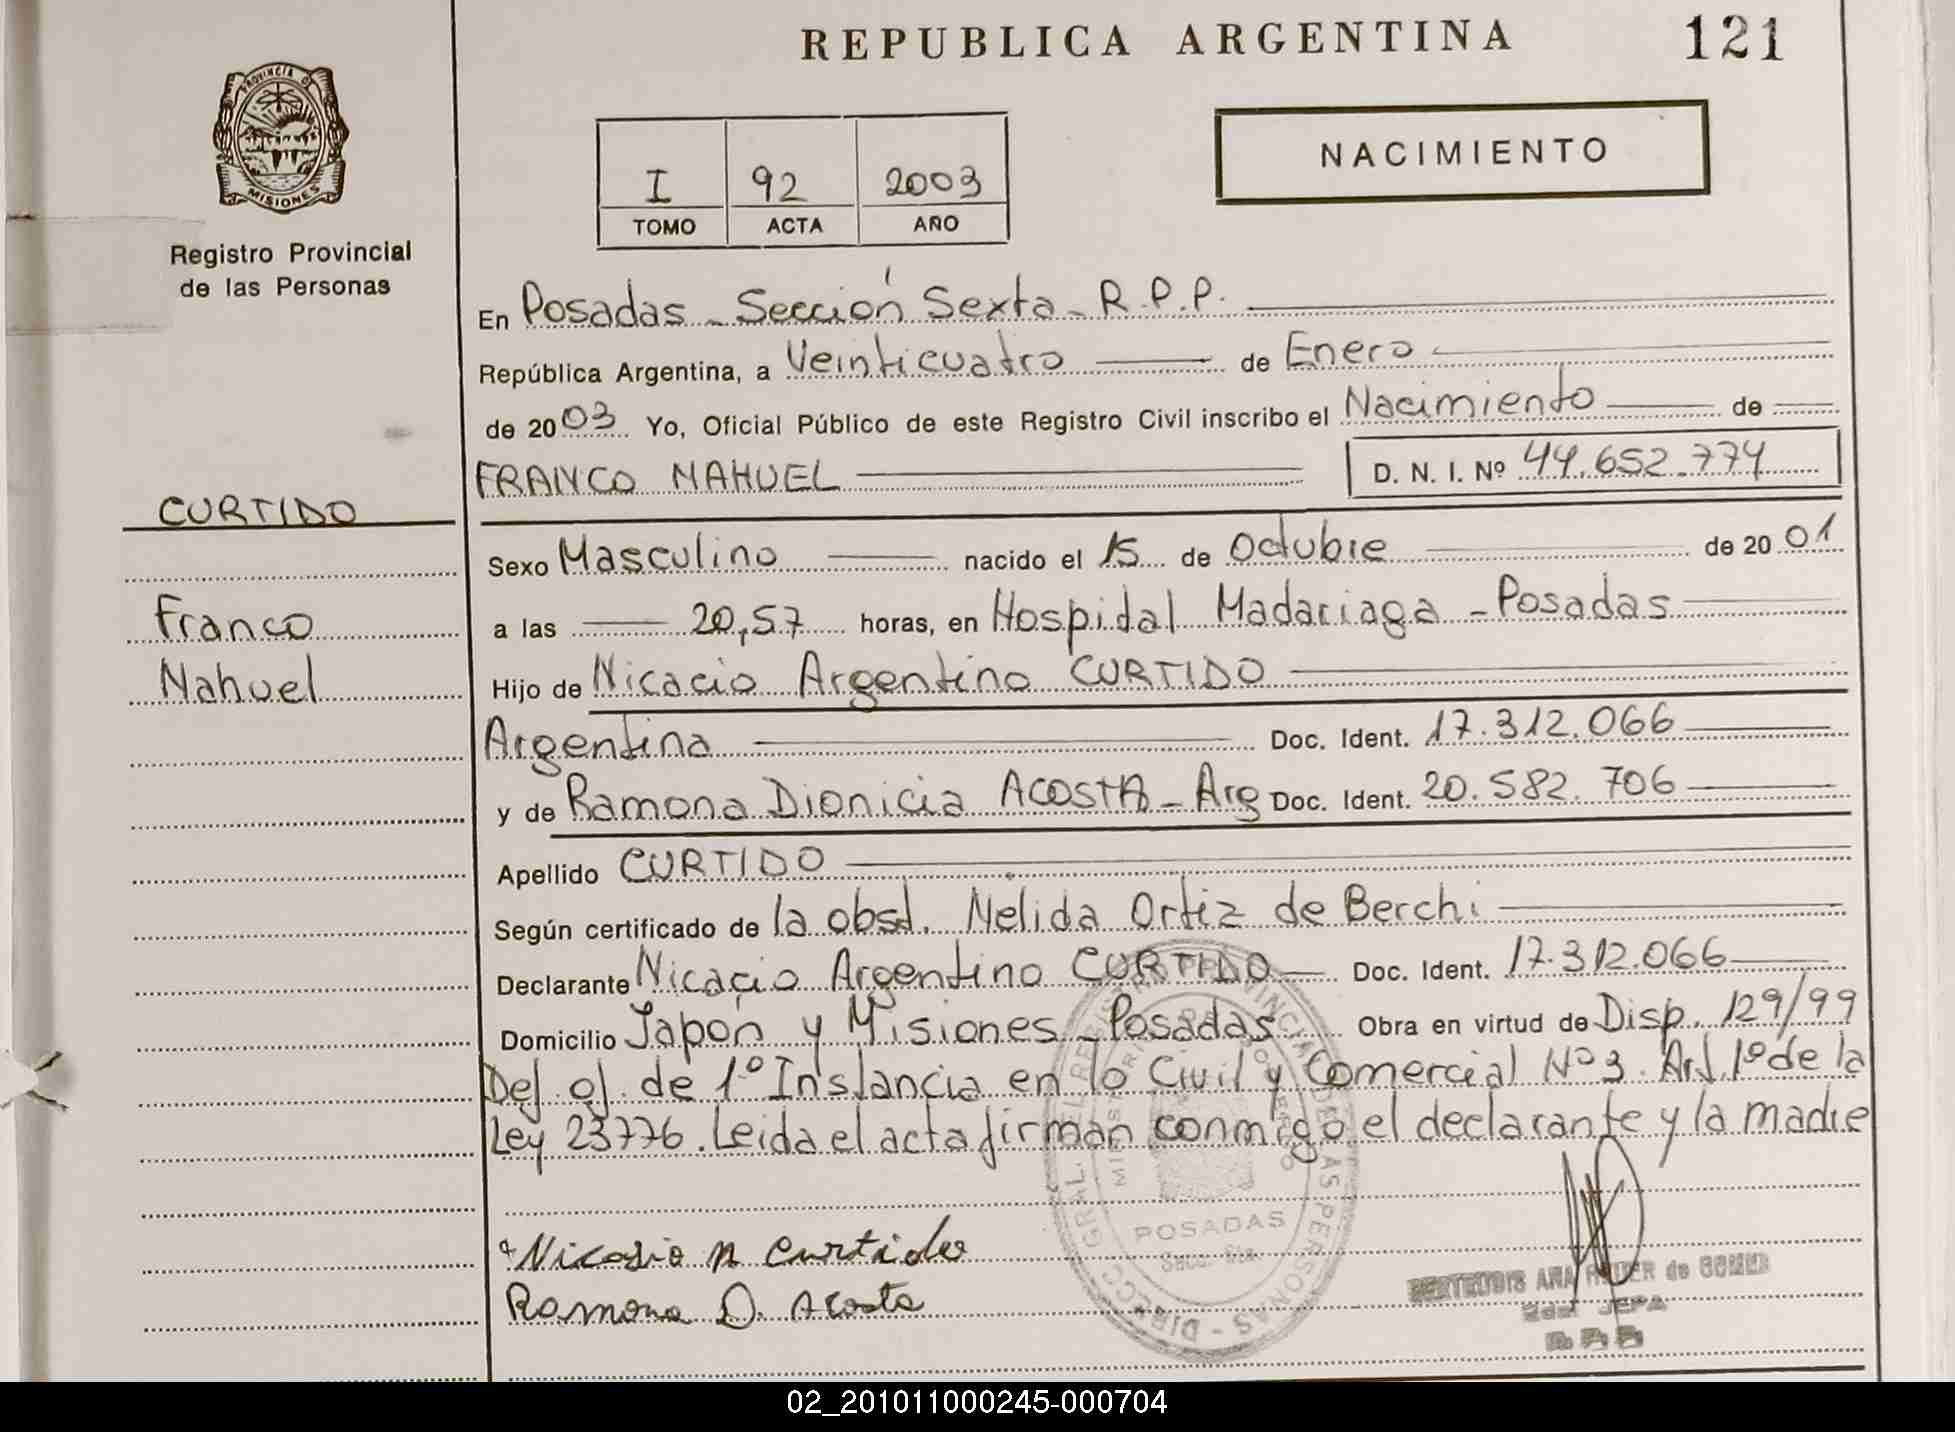 REPUBLICA ARGENTINA
121
PROVINCIA DE
MISIONES
Registro Provincial
de las Personas
I 92 2003
TOMO ACTA AÑO
NACIMIENTO
En Posadas - Sección Sexta - R.P.P.
República Argentina, a Veinticuatro de Enero
de 2003 Yo, Oficial Público de este Registro Civil inscribo el Nacimiento de
FRANCO NAHUEL D. N. I. Nº 44.652.774
CURTIDO
Franco
Nahuel
Sexo Masculino nacido el 15 de Octubre de 2001
a las 20,57 horas, en Hospital Madariaga - Posadas
Hijo de Nicacio Argentino CURTIDO
Argentina Doc. Ident. 17.312.066
y de Ramona Dionicia ACOSTA - Arg Doc. Ident. 20.582.706
Apellido CURTIDO
Según certificado de la obst. Nelida Ortiz de Berchi
Declarante Nicacio Argentino CURTIDO Doc. Ident. 17.312.066
Domicilio Japón y Misiones - Posadas Obra en virtud de Disp. 129/99
Del of. de 1º Instancia en lo Civil y Comercial Nº 3. Art. 1º de la
Ley 23776. Leida el acta firman conmigo el declarante y la madre
Nicasio A Curtido
Ramona D. Acosta
POSADAS
Secc. 6ta.
DIRECC. GRAL. DEL REGISTRO PROVINCIAL DE LAS PERSONAS
02_201011000245-000704